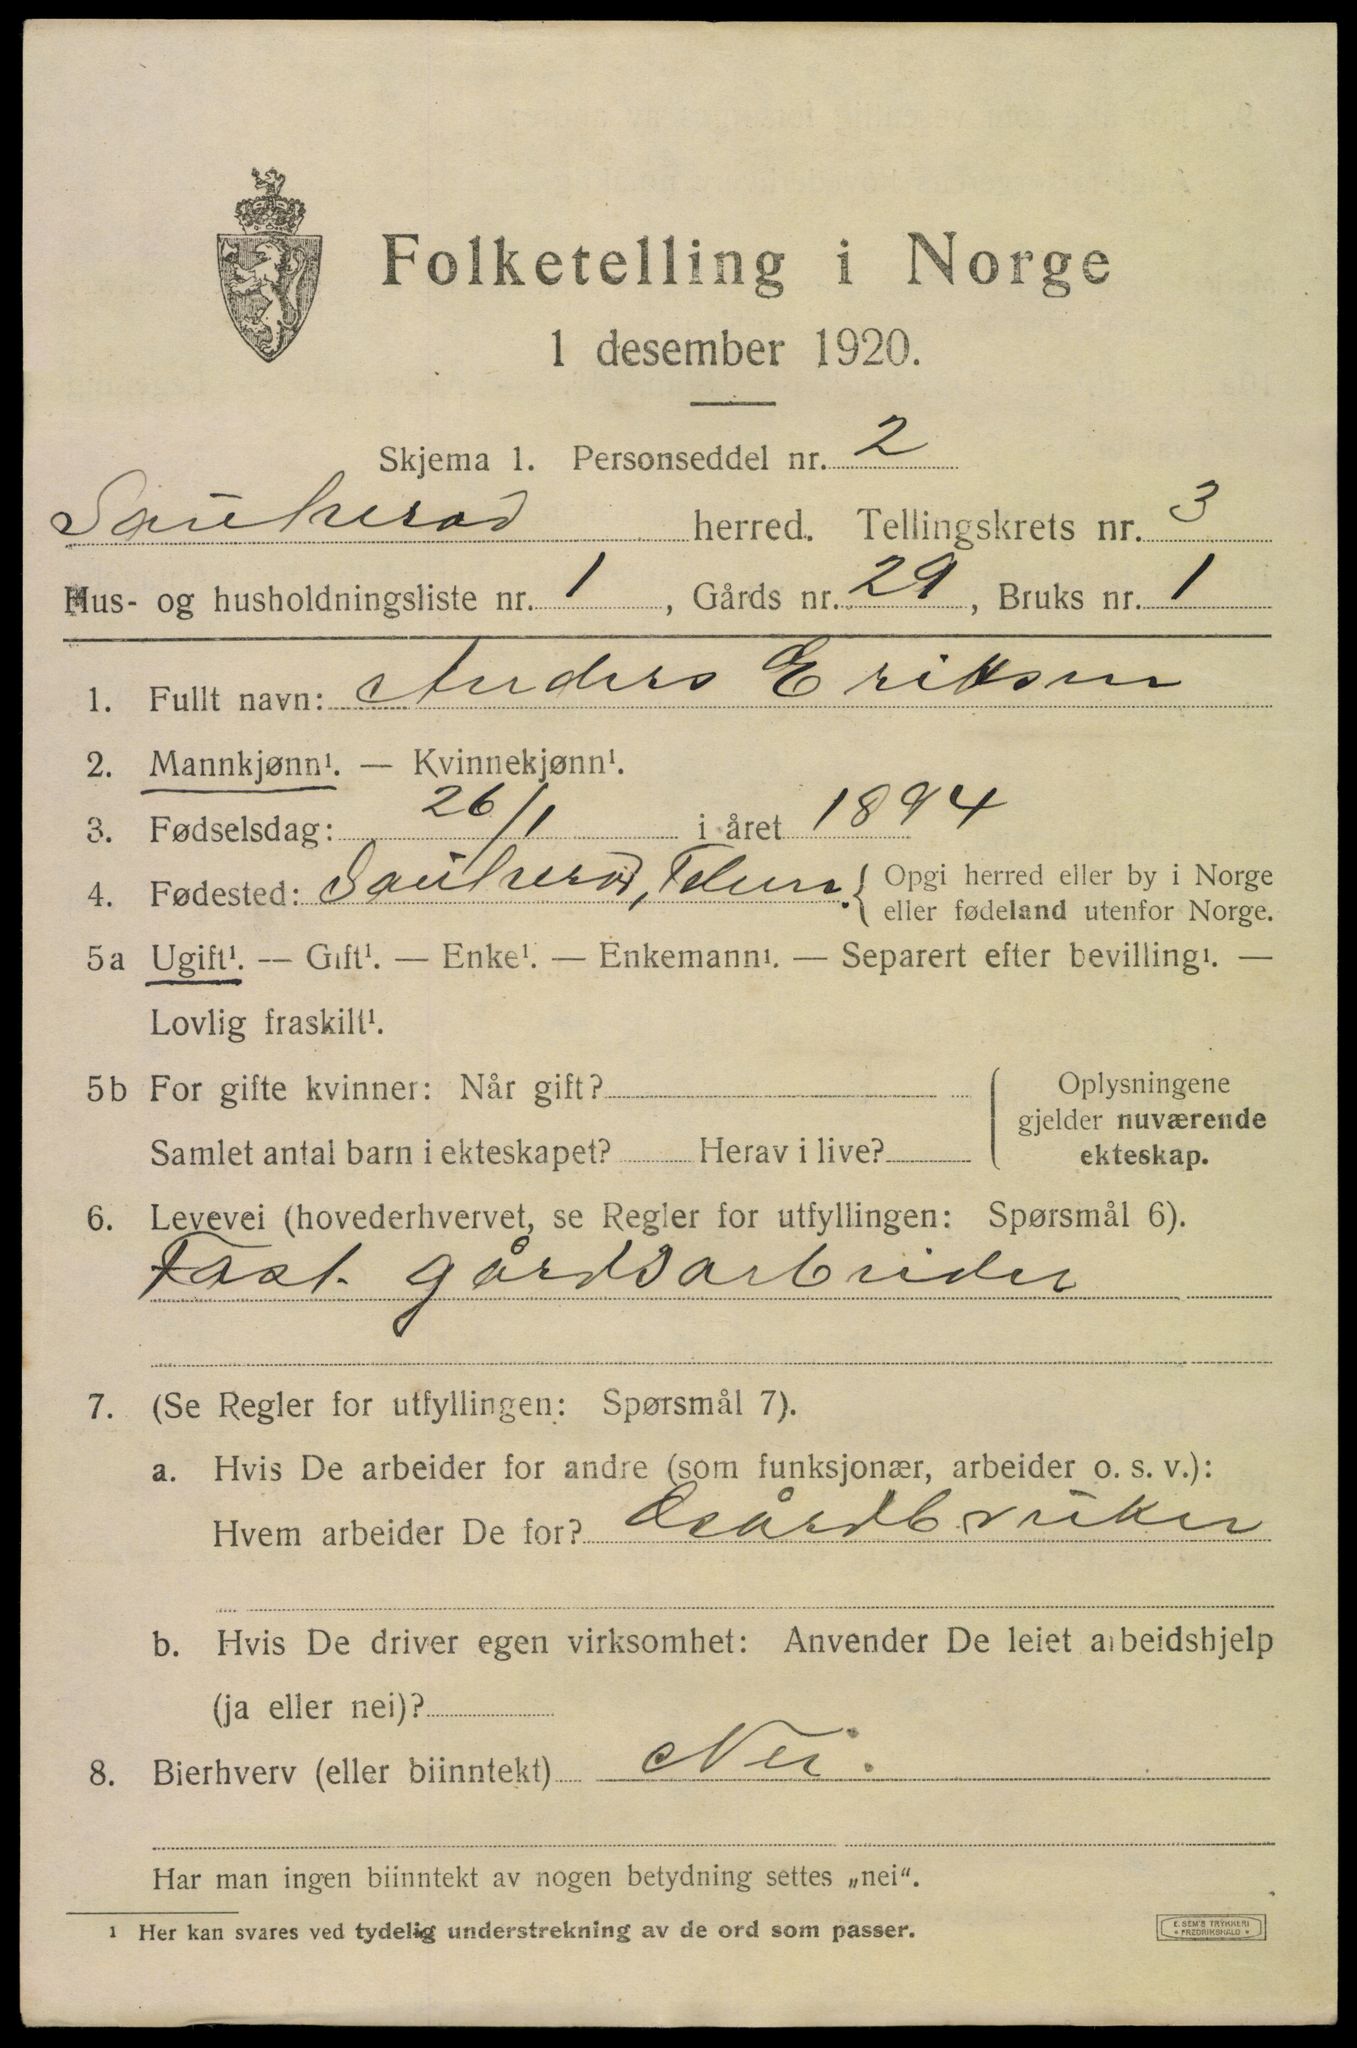 Folketelling i Norge
1 desember 1920.
Skjema 1. Personseddel nr. 2
Sauherad herred. Tellingskrets nr. 3
Hus- og husholdningsliste nr. 1, Gårds nr. 29, Bruks nr. 1
1. Fullt navn: Anders Eriksen
2. Mannkjønn¹. — Kvinnekjønn¹.
3. Fødselsdag: 26/1 i året 1894
4. Fødested: Sauherad, Telem. { Opgi herred eller by i Norge
eller fødeland utenfor Norge.
5a Ugift¹. — Gift¹. — Enke¹. — Enkemann¹. — Separert efter bevilling¹. —
Lovlig fraskilt¹.
5b For gifte kvinner: Når gift?
Oplysningene
gjelder nuværende
ekteskap.
Samlet antal barn i ekteskapet? Herav i live?
6. Levevei (hovederhvervet, se Regler for utfyllingen: Spørsmål 6).
Fast gårdsarbeider
7. (Se Regler for utfyllingen: Spørsmål 7).
a. Hvis De arbeider for andre (som funksjonær, arbeider o. s. v.):
Hvem arbeider De for? Gårdbruker
b. Hvis De driver egen virksomhet: Anvender De leiet arbeidshjelp
(ja eller nei)?
8. Bierhverv (eller biinntekt) Nei.
Har man ingen biinntekt av nogen betydning settes „nei“.
¹ Her kan svares ved tydelig understrekning av de ord som passer.
E. SEM'S TRYKKERI
FREDRIKSHALD